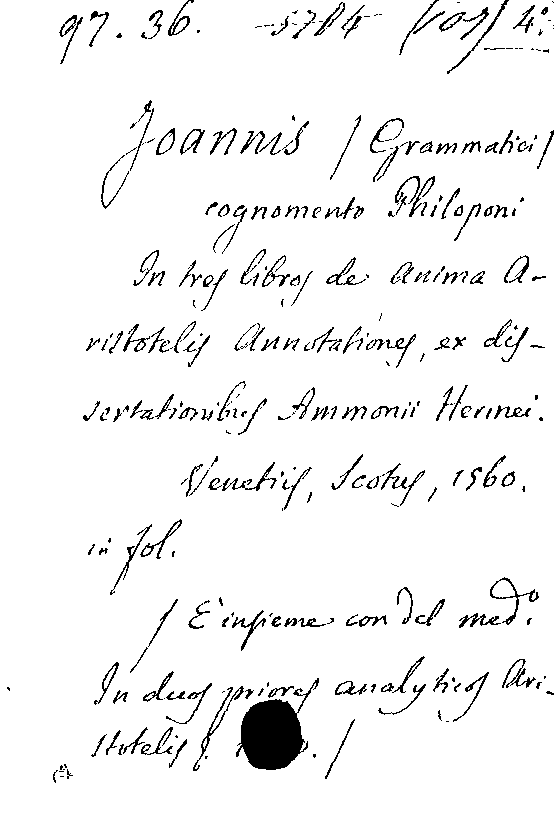 97. 36. 5784 (107) 4.
Joannis / Grammatici /
cognomento Philoponi
In tres libros de Anima A-
ristotelis Annotationes, ex dis-
sertationibus Ammonii Hermei.
Venetiis, Scotus, 1560.
in fol.
/ E' insieme con del med.o
In duos priores analyticos Ari-
stotelis